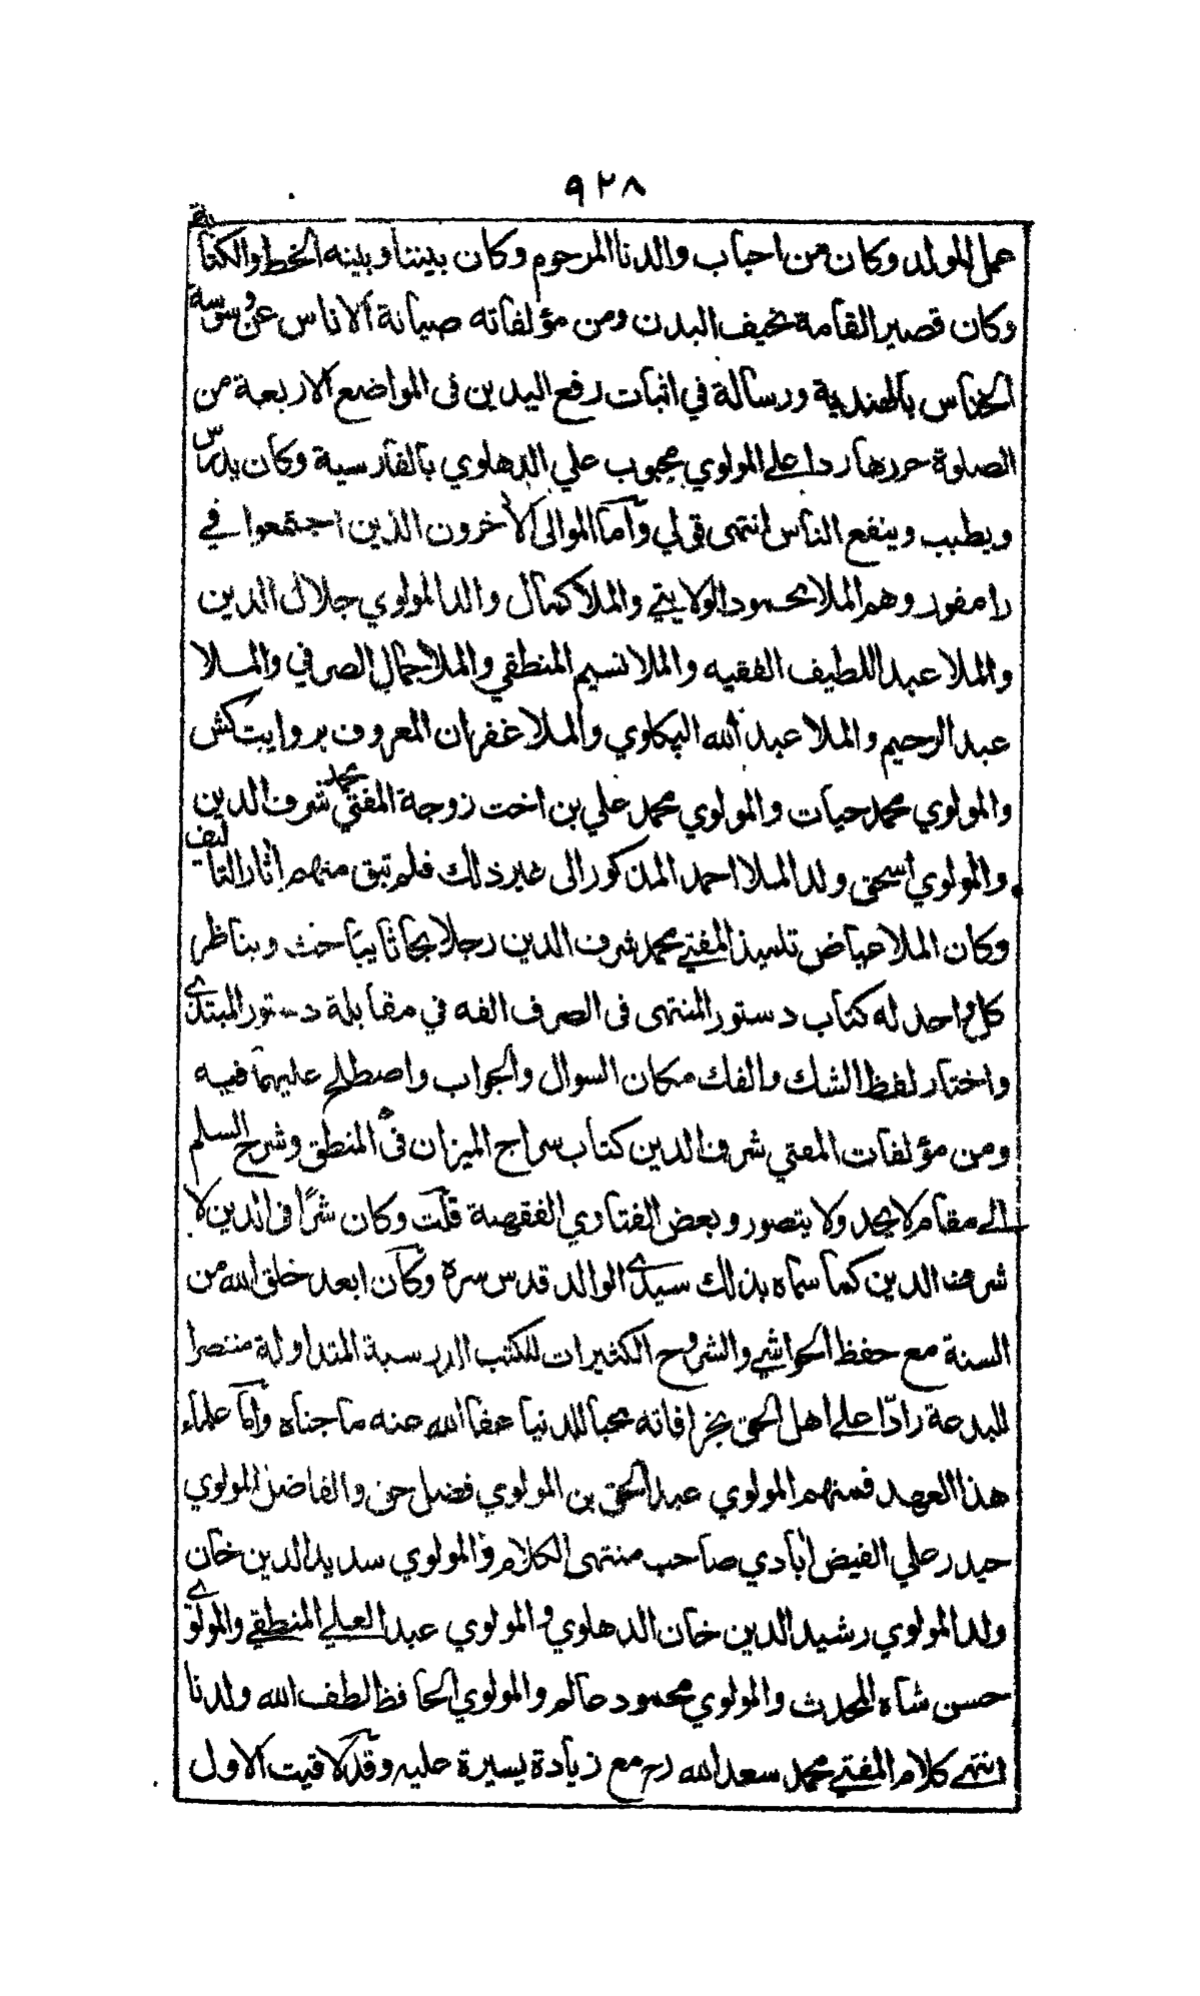 ٩٢٨
عمل المولد وكان من احباب والدنا المرحوم وكان بيننا وبينه الخط والكتابة
وكان قصير القامة نحيف البدن ومن مؤلفاته صيانة الاناس عن وسوسة
الخناس بالهندية ورسالة في اثبات رفع اليدين فى المواضع الاربعة من
الصلوة حررها ردا على المولوي محبوب علي الدهلوي بالفارسية وكان يدرس
ويطبب وينفع الناس انتهى قولي وآما الموالى الأخرون الذين اجتمعوا في
رامفور وهم الملا محمود الولايتي والملا كمال والد المولوي جلال الدين
والملا عبد اللطيف الفقيه والملا نسيم المنطقي والملا جمال الصرفي والملا
عبد الرحيم والملا عبد الله البپكاوي والملا غفران المعروف بروايت كش
والمولوي محمد حيات والمولوي محمد علي بن اخت زوجة المفتي محمد شرف الدين
والمولوي اسحق ولد الملا احمد المذكور الى غير ذلك فلم تبق منهم اثار التاليف
وكان الملا عياض تلميذ المفتي محمد شرف الدين رجلا بحاثا يباحث ويناظر
كل واحد له كتاب دستور المنتهى فى الصرف الفه في مقابلة دستور المبتدي
واختار لفظ الشك والفك مكان السوال والجواب واصطلح عليهما فيه
ومن مؤلفات المفتي شرف الدين كتاب سراج الميزان فى المنطق وشرح السلم
الى مقام لا يحد ولا يتصور وبعض الفتاوي الفقهية قلت وكان شرًا فى الدين لا
شرف الدين كما سماه بذلك سيدي الوالد قدس سره وكان ابعد خلق الله من
السنة مع حفظ الحواشي والشروح الكثيرات للكتب الدرسية المتداولة منتصرا
للبدعة رادّا على اهل الحق بخرافاته محبا للدنيا عفا الله عنه ما جناه وآما علماء
هذا العهد فمنهم المولوي عبد الحق بن المولوي فضل حق والفاضل المولوي
حيدر علي الفيض ابادي صاحب منتهى الكلام والمولوي سديد الدين خان
ولد المولوي رشيد الدين خان الدهلوي والمولوي عبد العلي المنطقي والمولوي
حسن شاه المحدث والمولوي محمود عالم والمولوي الحافظ لطف الله ولدنا
انتهى كلام المفتي محمد سعد الله رح مع زيادة يسيرة عليه وقد لاقيت الاول